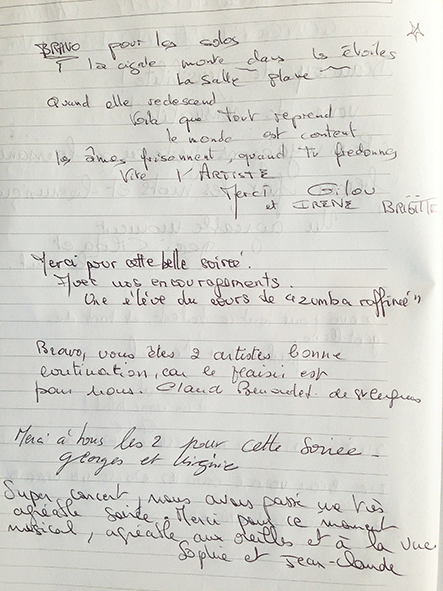 BRAVO pour les solos
la cigale monte dans les étoiles
La salle plane
Quand elle redescend
Voila que tout reprend
le monde est content
les âmes frisonnent, quand tu fredonnes
Vive l'ARTISTE
Merci Gilou
et IRENE BRIGITTE
Merci pour cette belle soireé.
Avec nos encouragements.
Une élève du cours de "zumba raffineé"
Bravo, vous êtes 2 artistes bonne
continuation car le plaisir est
pour nous. de
Merci à tous les 2 pour cette Soiree
georges et Virginie
Super concert, nous avons passé une très
agréable soirée. Merci pour ce moment
musical, agréable aux oreilles et à la vue
Sophie et Jean-Claude